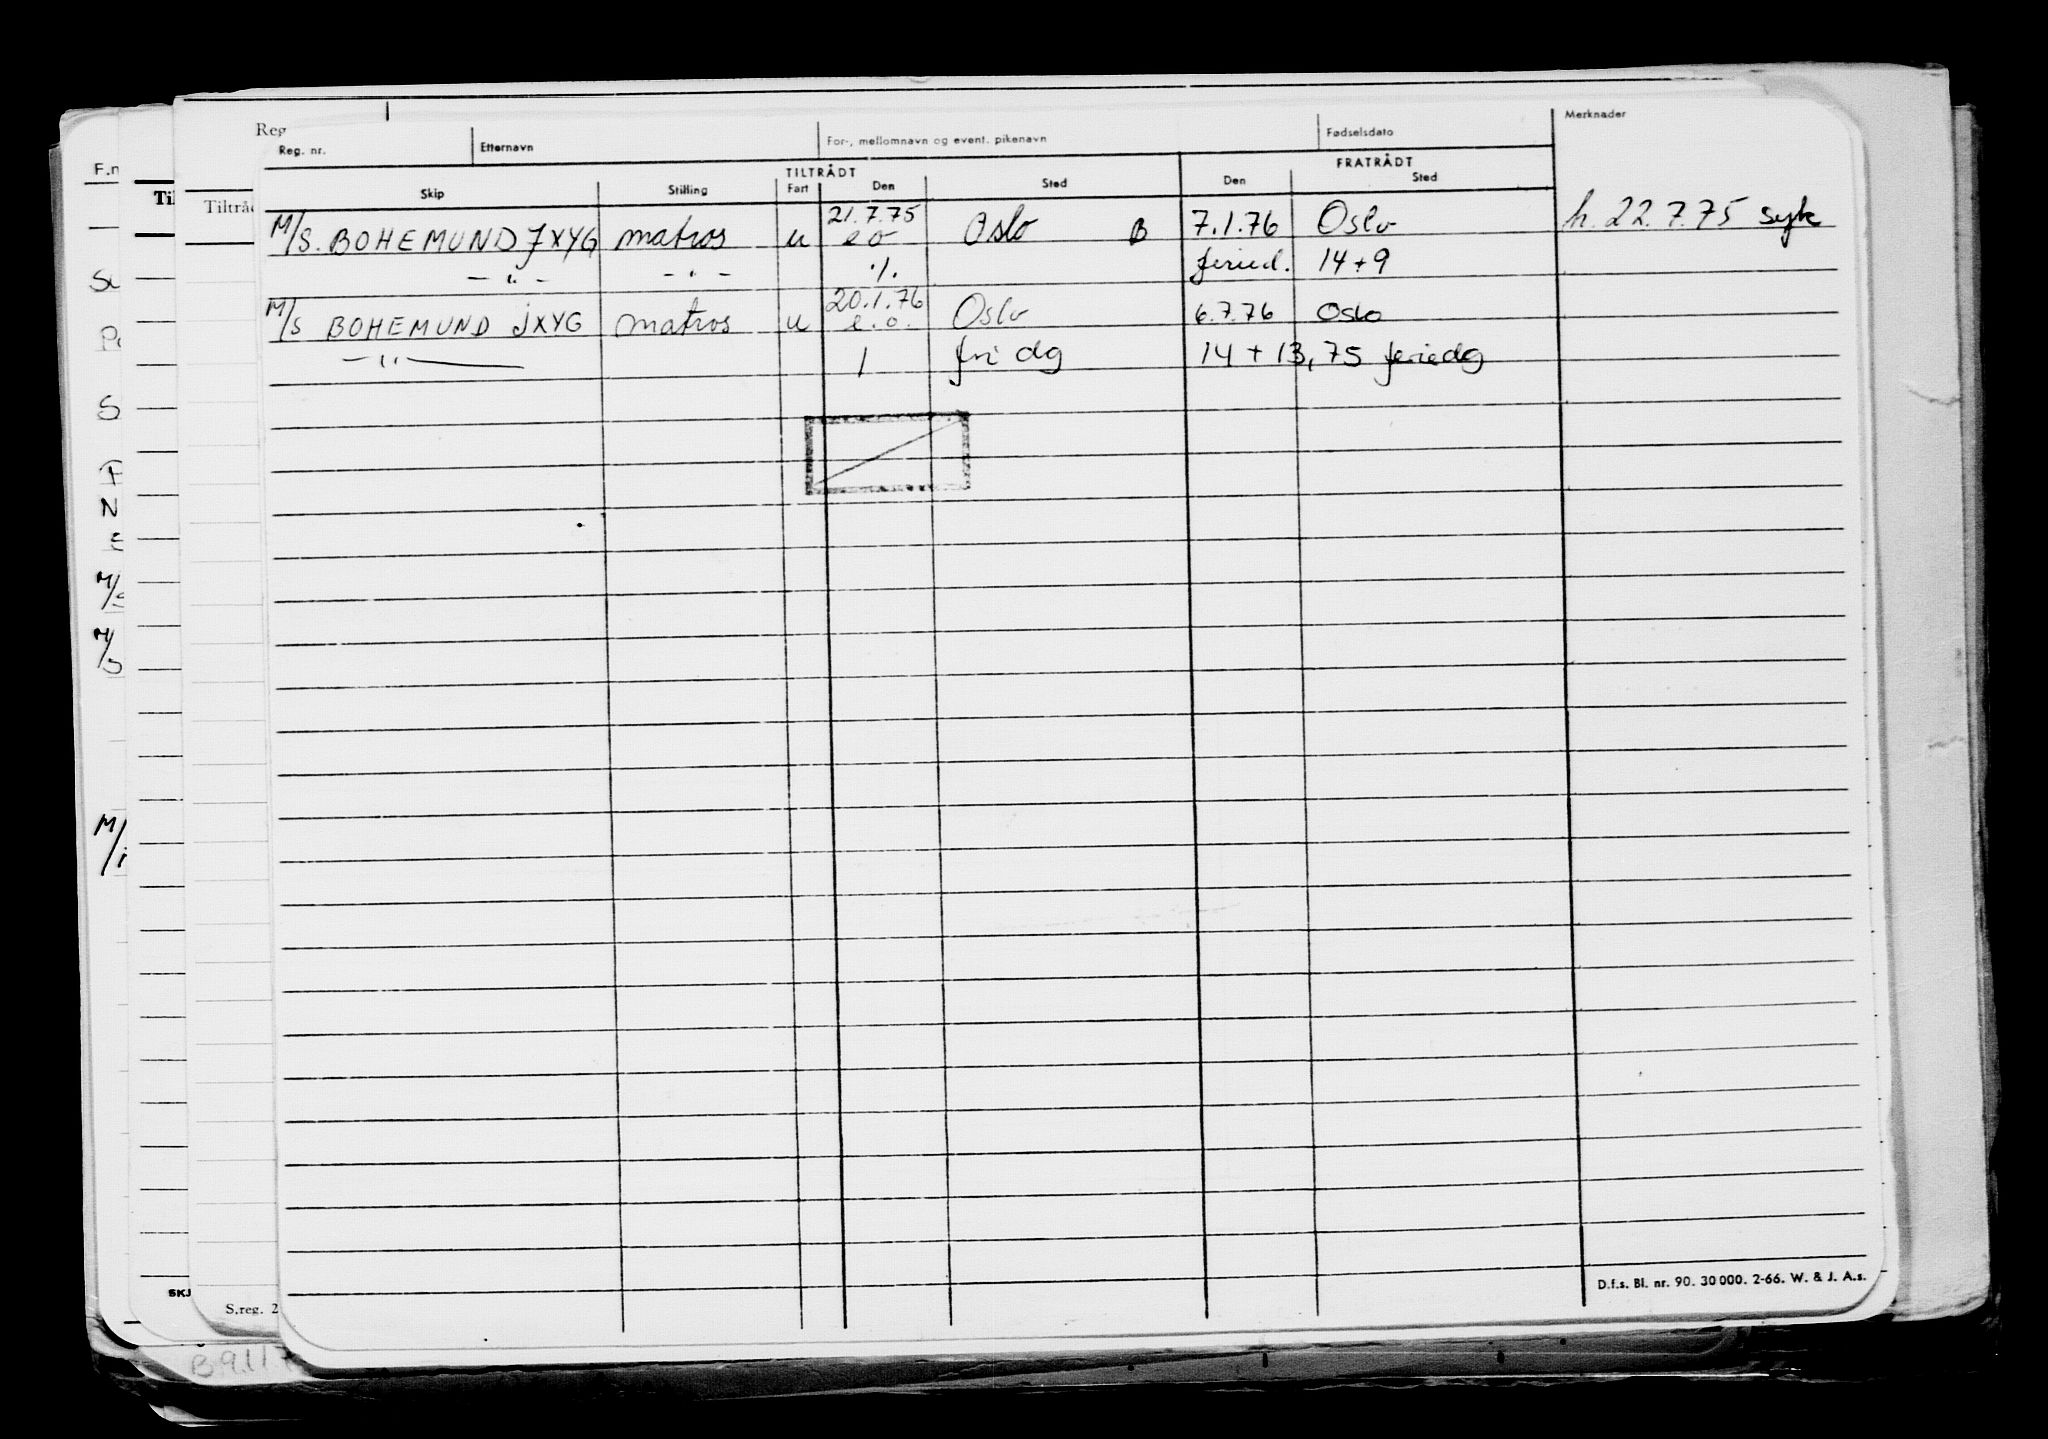 Reg. nr. Etternavn For-, mellomnavn og event. pikenavn Fødselsdato Merknader
TILTRÅDT FRATRÅDT
Skip Stilling Fart Den Sted Den Sted
M/S. BOHEMUND JXYG matros u 21.7.75 e o Oslo B 7.1.76 Oslo h. 22.7.75 syk
— " — — " — ./. feried. 14+9
M/S BOHEMUND JXYG matros u 20.1.76 e.o. Oslo 6.7.76 Oslo
— " — 1 fri dg 14 + 13,75 feriedg
D.f.s. Bl. nr. 90. 30 000. 2-66. W. & J. A.s.
Reg
F.n
Til
Tiltråd
S
N
M/S
M/S
M/
SKJ
S.reg. 2